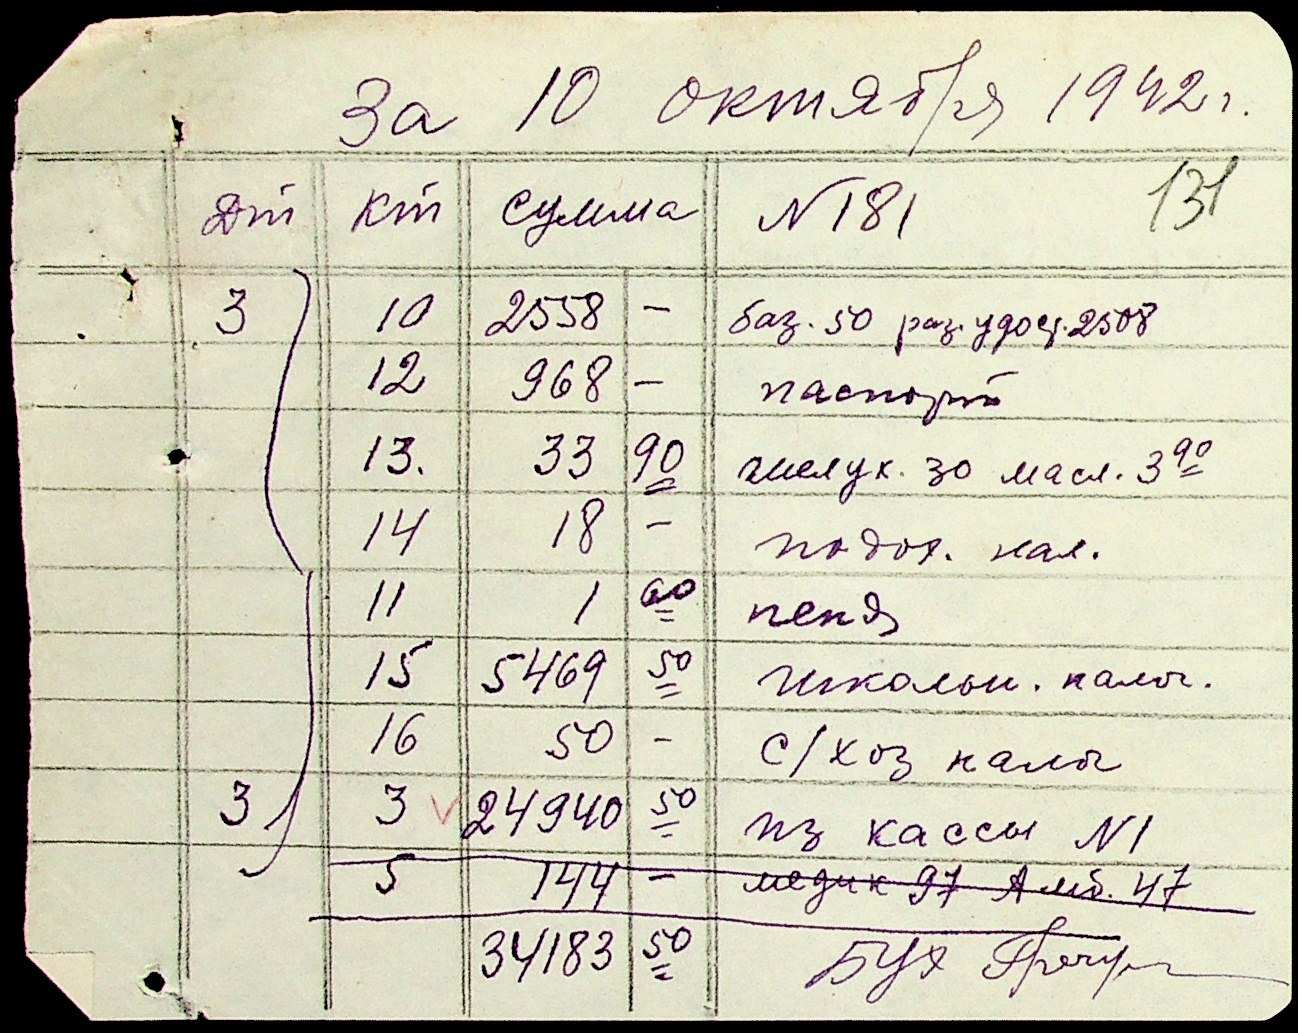 За 10 октября 1942 г.
Дт Кт сумма N 181 131
3 10 2558 – баз. 50 раз. удост. 2508
12 968 – паспорт
13. 33 90 шелух. 30 масл. 3 90
14 18 – подох. нал.
11 1 60 пеня
15 5469 50 школьн. налог.
16 50 – с/хоз налог
3 3 24940 50 из кассы N 1
5 144 – медик 97 Амб. 47
34183 50 Бух